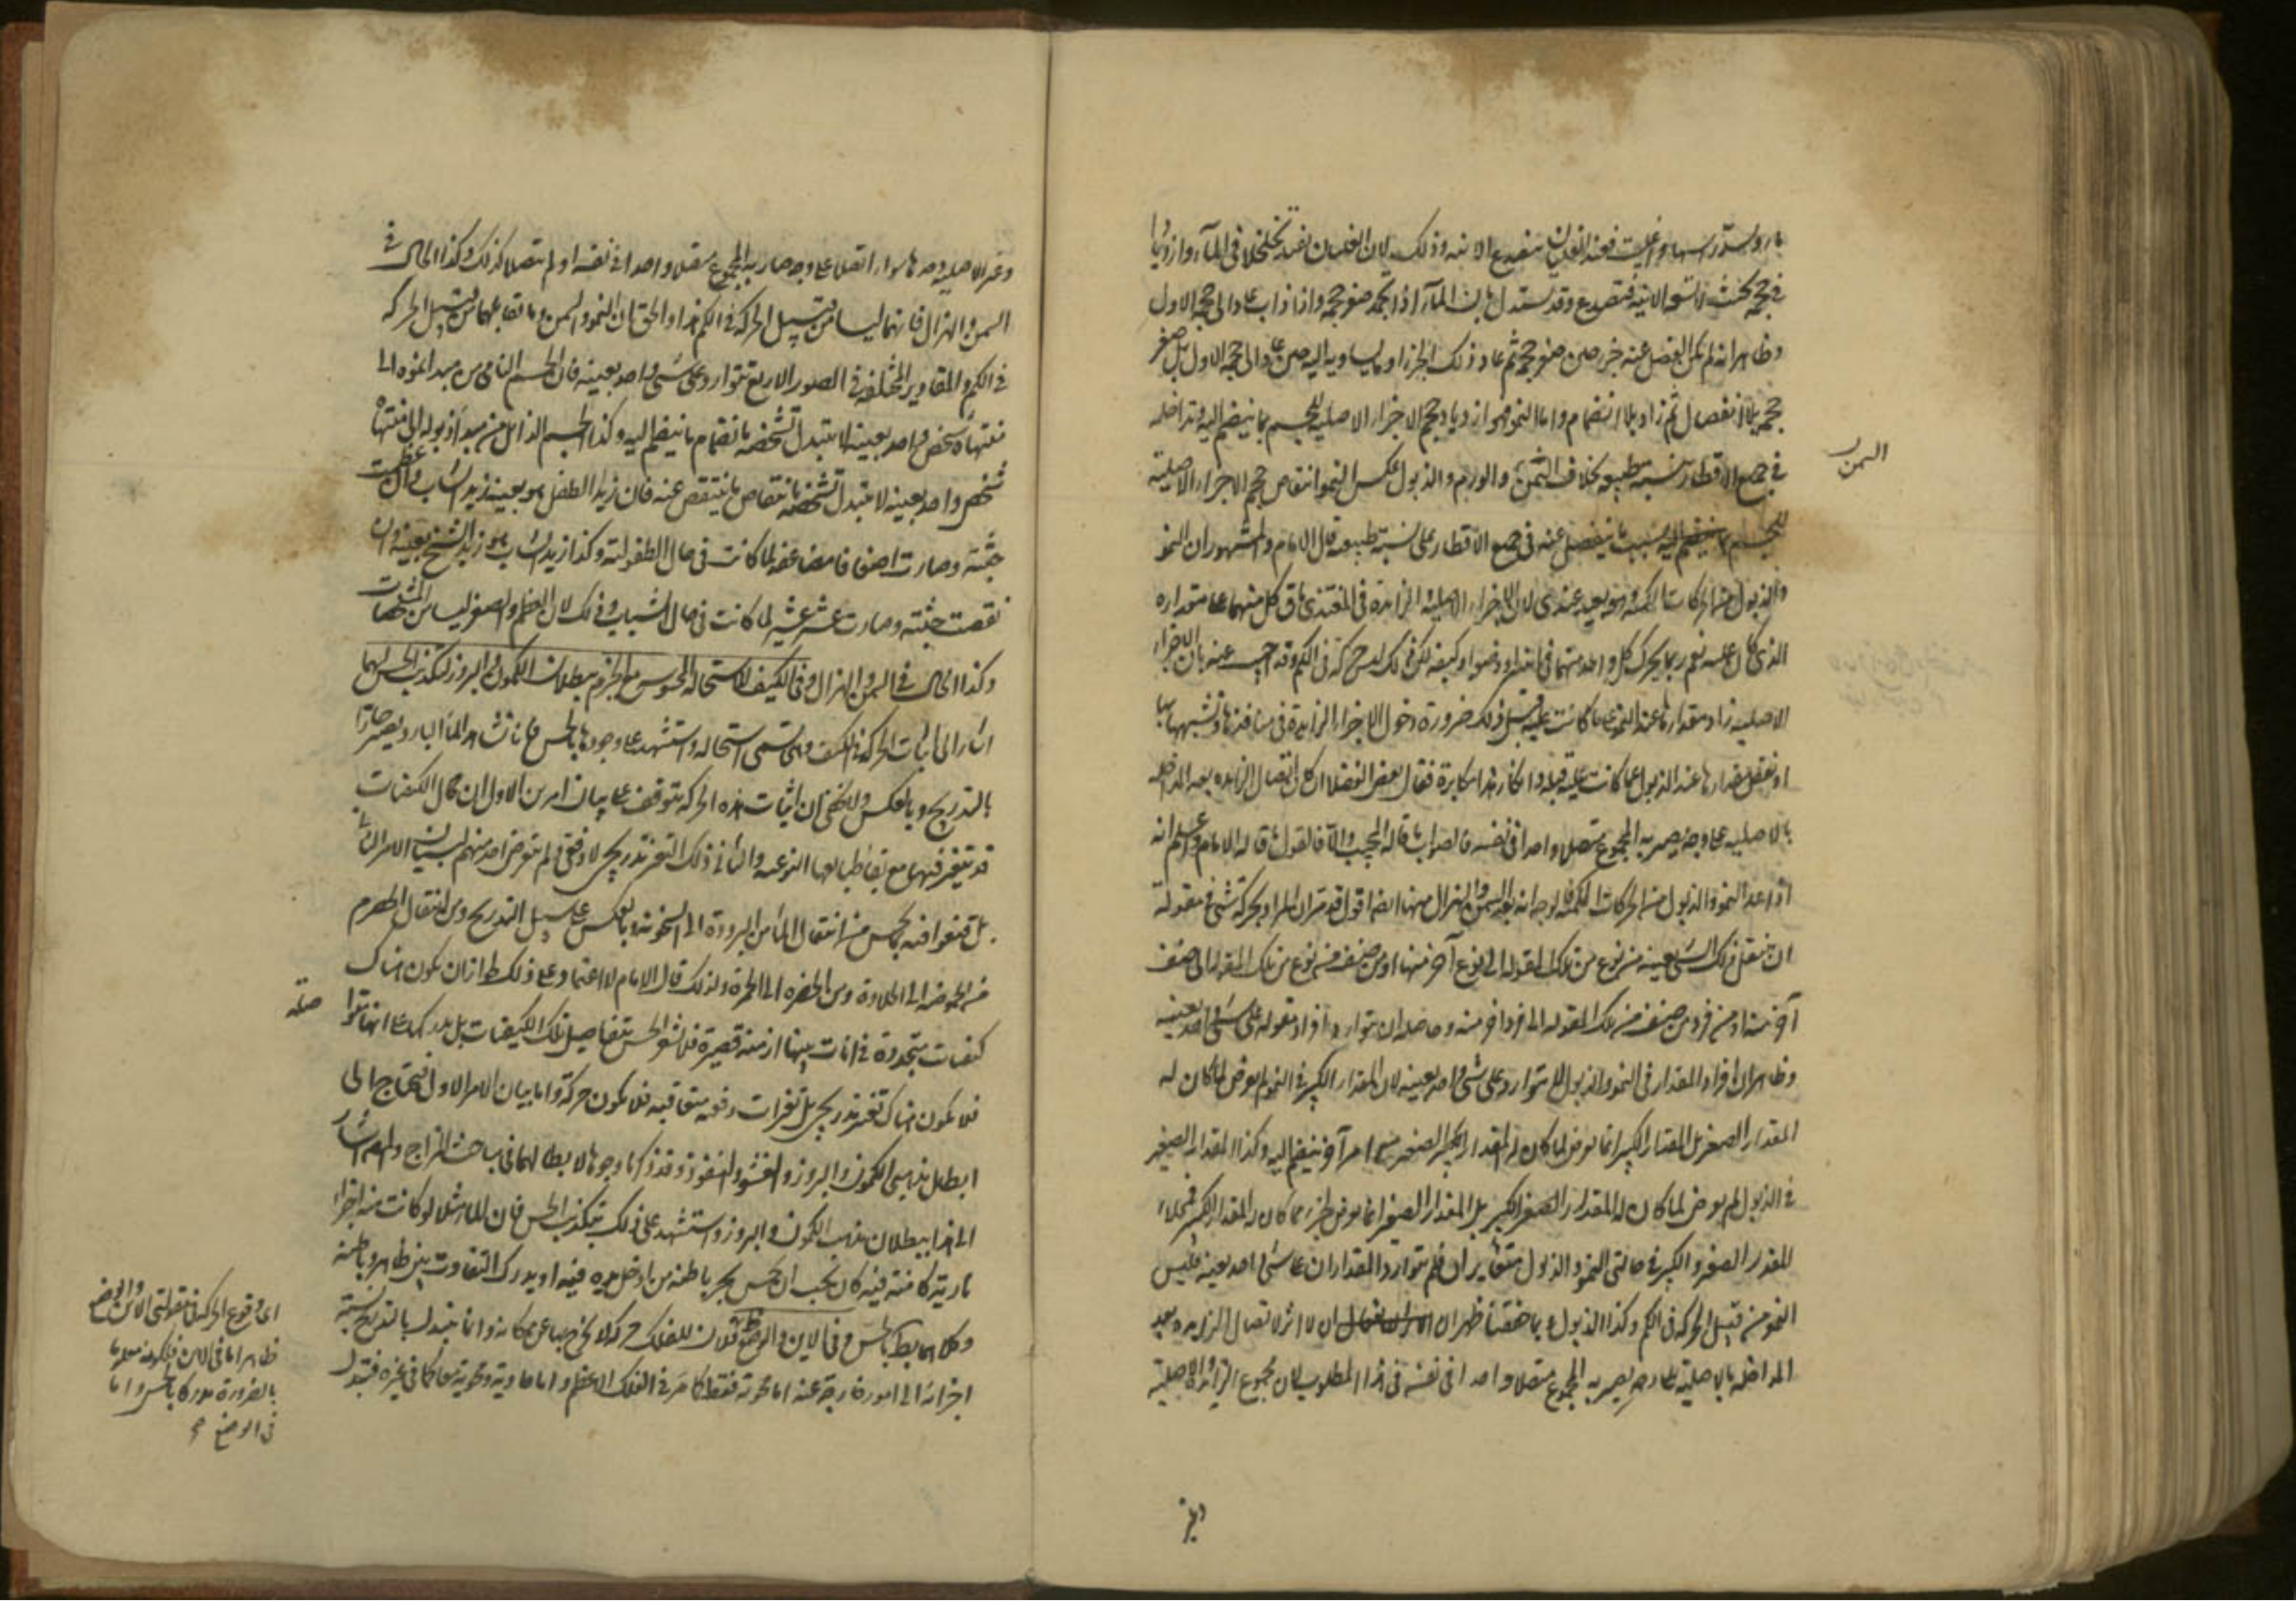 نار وسد رأسها واغليت فعند الغليان تنصدع الانية وذلك لان الغليان يفيد تخلخلا فى الماء وازديادا
فى حجمه بحيث لا تسعه الانية فتنصدع وقد يستدل بان الماء اذا انجمد صغر حجمه واذا ذاب عاد الى حجمه الاول
وظاهر انه لم يكن انفصل عنه جزء حين صغر حجمه ثم عاد ذلك الجزء او ما يساويه اليه حين عاد الى حجمه الاول بل صغر
حجمه بلا انفصال ثم زاد بلا انضمام واما النمو فهو ازدياد حجم الاجزاء الاصلية للجسم بما ينضم اليه ويداخله
فى جميع الاقطار بنسبة طبيعية بخلاف السمن والورم والذبول عكس النمو انتقاص حجم الاجزاء الاصلية
للجسم بسبب ما ينفصل عنه فى جميع الاقطار على نسبة طبيعية قال الامام والمشهور ان النمو
والذبول من الحركات الكمية وهو بعيد عندى لان الاجزاء الاصلية والزايدة فى المغتذى باق كل منهما على مقداره
الذى كان عليه نعم ربما يحرك كل واحد منهما فى اينه او وضعه او كيفه لكن ذلك ليس حركة فى الكم وقد اجيب عنه بان الاجزاء
الاصلية زاد مقدارها عند النمو على ما كانت عليه قبل ذلك ضرورة دخول الاجزاء الزايدة فى منافذها وتشبهها بها
او نقص مقدارها عند الذبول عما كانت عليه قبله وانكار هذا مكابرة فقال بعض الفضلا ان كان اتصال الزايده بعد المداخلة
بالاصلية على وجه يصير به المجموع متصلا واحدا فى نفسه فالصواب ما قاله المجيب والا فالقول ما قاله الامام واعلم انه
اذا عد النمو والذبول من الحركات الكمية فالوجه ان يعد السمن والهزال منها ايضا اقول قد مر ان المراد بحركة شئ فى مقولة
ان ينتقل ذلك الشئ بعينه من نوع من تلك المقولة الى نوع آخر منها او من صنف من نوع من تلك المقولة الى صنف
آخر منه او من فرد من صنف من تلك المقولة الى فرد آخر منه وحاصله ان يتوارد افراد مقولة على شئ واحد بعينه
وظاهر ان افراد المقدار فى النمو والذبول لا يتوارد على شئ واحد بعينه لان المقدار الكبير فى النمو لم يعرض لما كان له
المقدار الصغير بل المقدار الكبير انما يعرض لما كان له المقدار الصغير مع امر آخر ينضم اليه وكذا المقدار الصغير
فى الذبول لم يعرض لما كان له المقدار الكبير بل المقدار الصغير انما يعرض لجزء مما كان له المقدار الكبير فمحلا
المقدار الصغير والكبير فى حالتى النمو والذبول متغايران فلم يتوارد المقداران على شئ واحد بعينه فليس
النمو من قبيل الحركة فى الكم وكذا الذبول وبما حققنا ظهر ان لا اثر لاتصال الزايدة بعد
المداخلة بالاصلية على وجه يصير به المجموع متصلا واحدا فى نفسه فى هذا المطلوب لان مجموع الزايدة والاصلية
السمن
وغير الاصلية سواء اتصل على وجه صار به المجموع متصلا واحدا فى نفسه او لم يتصل كذلك وكذا الحال فى
السمن والهزال فانهما ليسا من قبيل الحركة فى الكم هذا والحق ان النمو والسمن وما يقابلهما من قبيل الحركة
فى الكم والمقادير المختلفة فى الصور الاربع تتوارد على شئ واحد بعينه فان الجسم النامى من مبدا نموه الى
منتهاه شخص واحد بعينه لا يتبدل تشخصه بانضمام ما ينضم اليه وكذا الجسم الذابل من مبدا ذبوله الى منتهاه
شخص واحد بعينه لا يتبدل تشخصه بانتقاص ما ينتقص عنه فان زيد الطفل هو بعينه زيد الشاب وان عظمت
جثته وصارت اضعافا مضاعفة لما كانت فى حال الطفولية وكذا زيد الشاب هو زيد الشيخ بعينه وان
نقصت جثته وصارت عشر عشير لما كانت فى حال الشباب وذلك لان العظم والصغر ليسا من المشخصات
وكذا الحال فى السمن والهزال وفى الكيف للاستحالة المحسوس مع الجزم ببطلان الكمون والبروز لتكذيب الحس لهما
اشار الى اثبات الحركة فى الكيف وهى تسمى استحالة واستشهد على وجودها بالحس فانا نشاهد الماء البارد يصير حارا
بالتدريج وبالعكس ولا يخفى ان اثبات هذه الحركة يتوقف على بيان امرين الاول ان محال الكيفيات
قد يتغير فيها مع بقاء طبائعها النوعية والثانى ذلك التغير تدريجى لا دفعى ولم يتعرض احد منهم لبيان الامر الثانى
بل قنعوا فيه بالحس من انتقال الماء من البرودة الى السخونة وبالعكس على سبيل التدريج ومن انتقال الحصرم
من الحموضة الى الحلاوة ومن الخضرة الى الحمرة ولذلك قال الامام لا اعتماد على ذلك لجواز ان يكون هناك
كيفيات متجددة فى انات بينها ازمنة قصيرة فلا يشعر الحس بتفاصيل تلك الكيفيات بل يدركها على انها متواصلة
فلا يكون هناك تغير تدريجى بل تغيرات دفعية متعاقبة فلا يكون حركة واما بيان الامر الاول فيحتاج الى
ابطال مذهبى الكمون والبروز والفشو والنفوذ وقد ذكرنا وجوها لابطالهما فى مباحث المزاج والمص اشار
الى هذا ببطلان مذهب الكمون والبروز واستشهد على ذلك بتكذيب الحس فان الماء مثلا لو كانت فيه اجزاء
نارية كامنة فيه كان يجب ان يحس بحر باطنه من ادخل يده فيه او يدرك التفاوت بين ظاهره وباطنه
وكلاهما بط بالحس وفى الاين والوضع ظ فلان للفلك حركة لا يخرج بها عن مكانه وانما يتبدل بالتدريج نسبة
اجزائه الى امور خارجة عنه اما محوية فقط كما مر فى الفلك الاعظم واما حاوية ومحوية معا كما فى غيره فيتبدل
اى وقوع الحركة فى مقولتى الاين والوضع
ظاهر اما فى الاين فلكونه معلوما
بالضرورة مدركا بالحس واما
فى الوضع